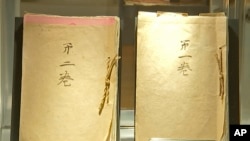 第二巻
第一巻
AP